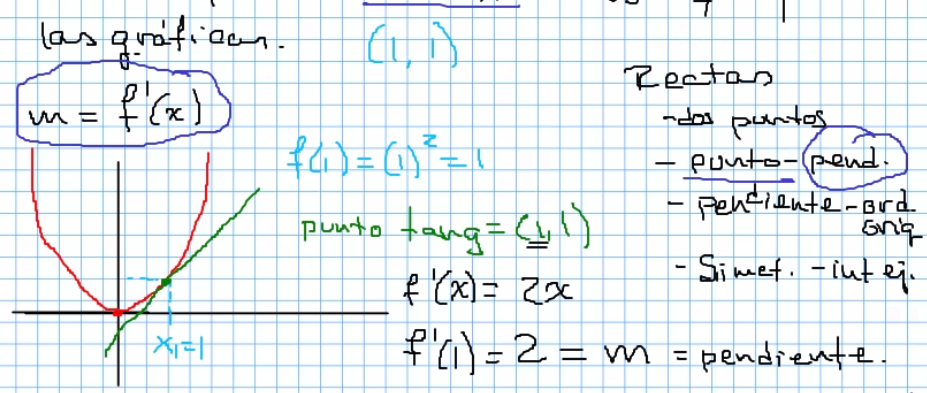 las gráficas.
(1, 1)
m = f'(x)
f(1) = (1)² = 1
punto tang = (1, 1)
f'(x) = 2x
f'(1) = 2 = m = pendiente.
x₁=1
Rectas
- dos puntos
- punto - pend.
- pendiente - ord
orig
- Simet. - int ej.